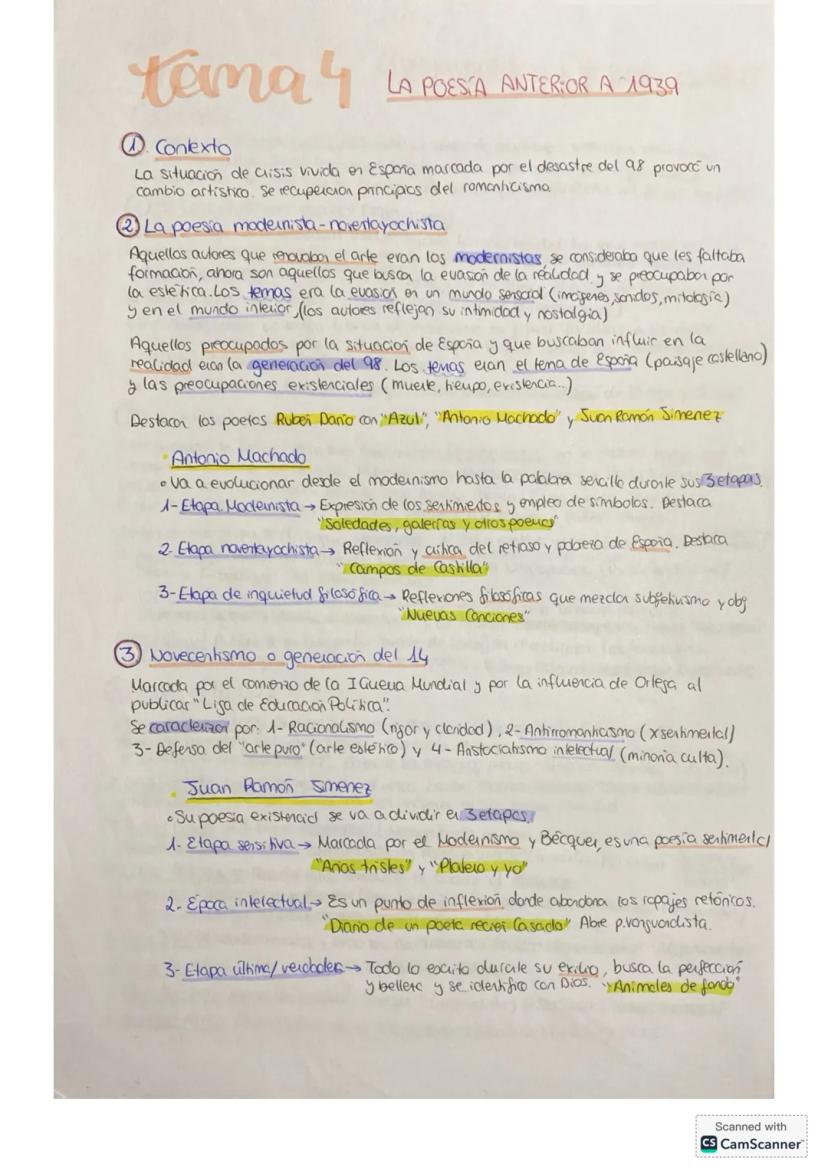 tema 4 LA POESÍA ANTERIOR A 1939
1. Contexto
La situación de crisis vivida en España marcada por el desastre del 98 provocó un
cambio artístico. Se recuperaron principios del romanticismo
2 La poesía modernista-noventayochista
Aquellos autores que renovaban el arte eran los modernistas, se consideraba que les faltaba
formación, ahora son aquellos que busca la evasión de la realidad y se preocupaban por
la estética. Los temas era la evasión en un mundo sensorial (imágenes, sonidos, mitología)
y en el mundo interior, (los autores reflejan su intimidad y nostalgia)
Aquellos preocupados por la situación de España y que buscaban influir en la
realidad eran la generación del 98. Los temas eran el tema de España (paisaje castellano)
y las preocupaciones existenciales (muerte, tiempo, existencia...)
Destacan los poetas Rubén Darío con "Azul", "Antonio Machado" y Juan Ramón Jimenez
• Antonio Machado
• Va a evolucionar desde el modernismo hasta la palabra sencilla durante sus 3 etapas.
1- Etapa Modernista → Expresión de los sentimientos y empleo de símbolos. Destaca
"Soledades, galerías y otros poemas"
2- Etapa noventayochista → Reflexión y crítica del retraso y pobreza de España. Destaca
"Campos de Castilla"
3- Etapa de inquietud filosófica → Reflexiones filosóficas que mezclan subjetivismo y obj
"Nuevas Canciones"
3 Novecentismo o generación del 14
Marcada por el comienzo de la I Guerra Mundial y por la influencia de Ortega al
publicar "Liga de Educación Política".
Se caracterizan por: 1- Racionalismo (rigor y claridad), 2- Antirromanticismo (x sentimental)
3- Defensa del "arte puro" (arte estético) y 4- Aristocratismo intelectual (minoría culta).
• Juan Ramón Jimenez
• Su poesía existencial se va a dividir en 3 etapas.
1- Etapa sensitiva → Marcada por el Modernismo y Bécquer, es una poesía sentimental
"Arias tristes" y "Platero y yo"
2- Época intelectual → Es un punto de inflexión, donde abandona los ropajes retóricos.
"Diario de un poeta recien Casado" Abre p. vanguardista.
3- Etapa última/verdadera → Todo lo escrito durante su exilio, busca la perfección
y belleza y se identifica con Dios. "Animales de fondo"
Scanned with
CS CamScanner